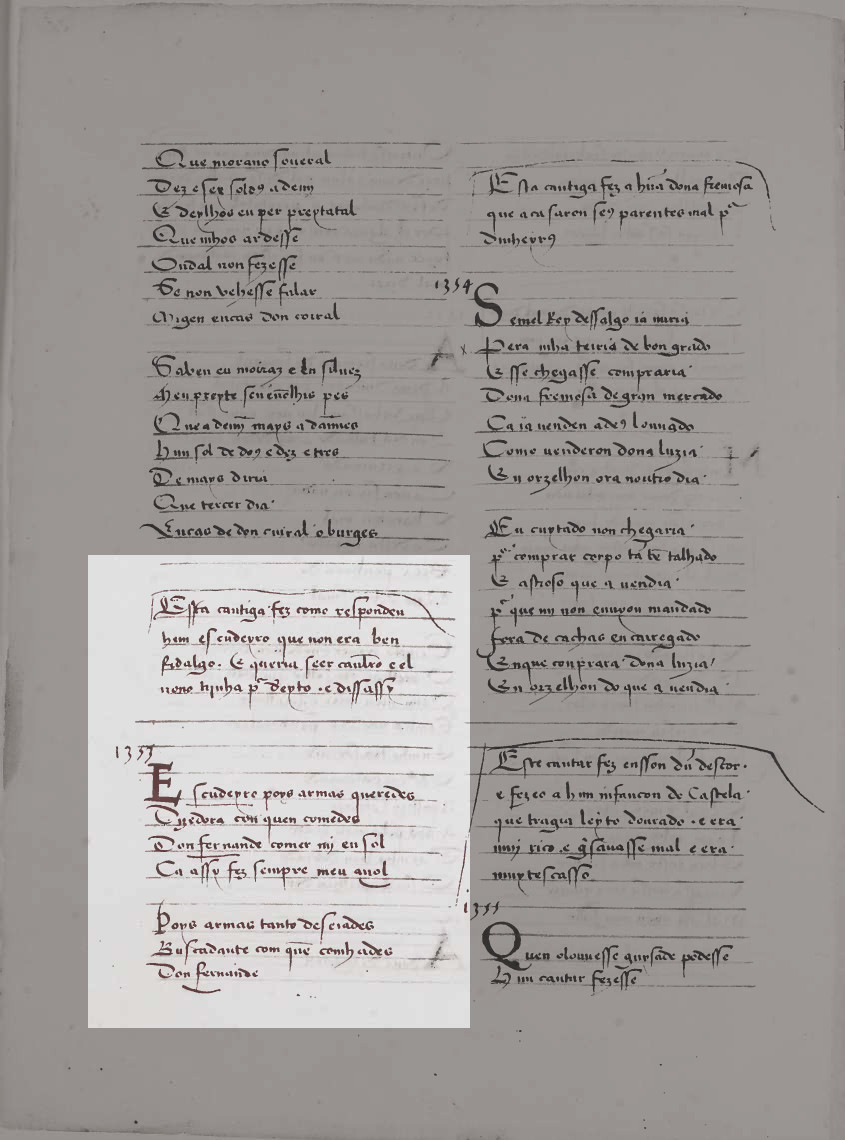 Que morano soueral
Dez e sex soldꝰ a demj
E deylhos eu per preytatal
Que mhos ardesse
Ondal non fezesse
Se non vehesse falar
Migen eucas don coiral
Saben eu moiraz e
Meu preyte
Que a demj mays a dam̄es
Hun sol de doꝰ e dez e tres
De mays diria
Que tercer dia
Eucas de don cuiral o burges
Esta cantiga fez como respondeu
hum escudeyro que non era ben
fidalgo. E queria seer caul̄ro e el
nono tijnha p̄ dẽyto . e diss assy
1353
Escudeyro poys armas queredes
Dizedora con quen comedes
Don fernande comer mj eu sol
Ca assy fez sempre meu auol
Poys armas tanto deseiades
Buscadante com que comhades
Don fernande
Esta cantiga fez a hũa dona fremosa
que a casaron seꝰ parentes mal p̄
dinheyrꝰ
1354
Semel Rey dessalgo ia miria
Pera mha teiria de bon grado
E sse chegasse compraria
Dona fremosa de gran mercado
Ca ia uenden a deꝰ louuado
Como uenderon dona luzia
En orzelhon ora noutro dia
Eu cuytado non chegaria
p̄ comprar corpo tã bẽ talhado
E astroso que a uendia
p̄ que mj non enuyou mandado
fora de cachas encarregado
En que conprara dona luzia
En orzelhon do que a uendia
Este cantar fez ensson dũ descor.
e fezeo a hun infançon de Castela
que tragia leyto dourado . e era
muj rico . e gisauasse mal e era
muytescasso
1355
Quen olouuesse guysãde podesse
Hun cantar fezesse